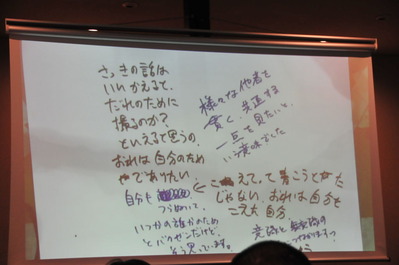 さっきの話は
いいかえると、
だれのために
撮るのか?
といえると思うの。
おれは自分のため
でありたい
様々な他者を
貫く、共通する
一点を見たいと、
いう意味でした
自分も
つらぬいて、
いつかの誰かのため
とバクゼンだけど、
そう思っています。
こえて、って書こうとかた
じゃない。おれは自分も
こえた自分。
意識と無意識の